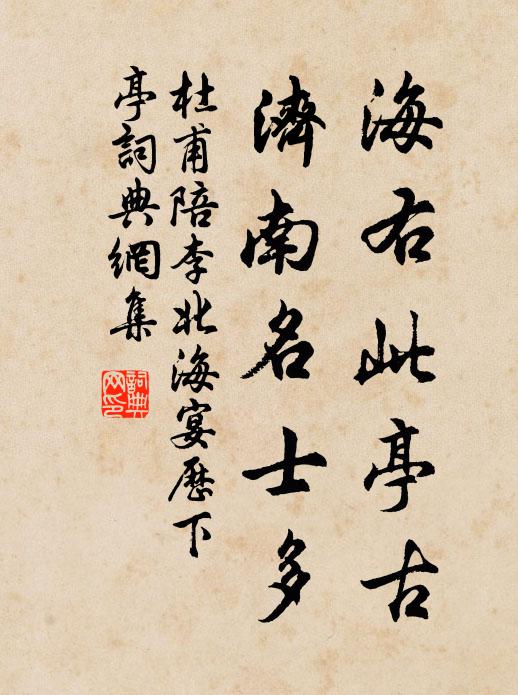 海右此亭古
濟南名士多
杜甫陪李北海宴歷下
亭詞典網集
詞典網印